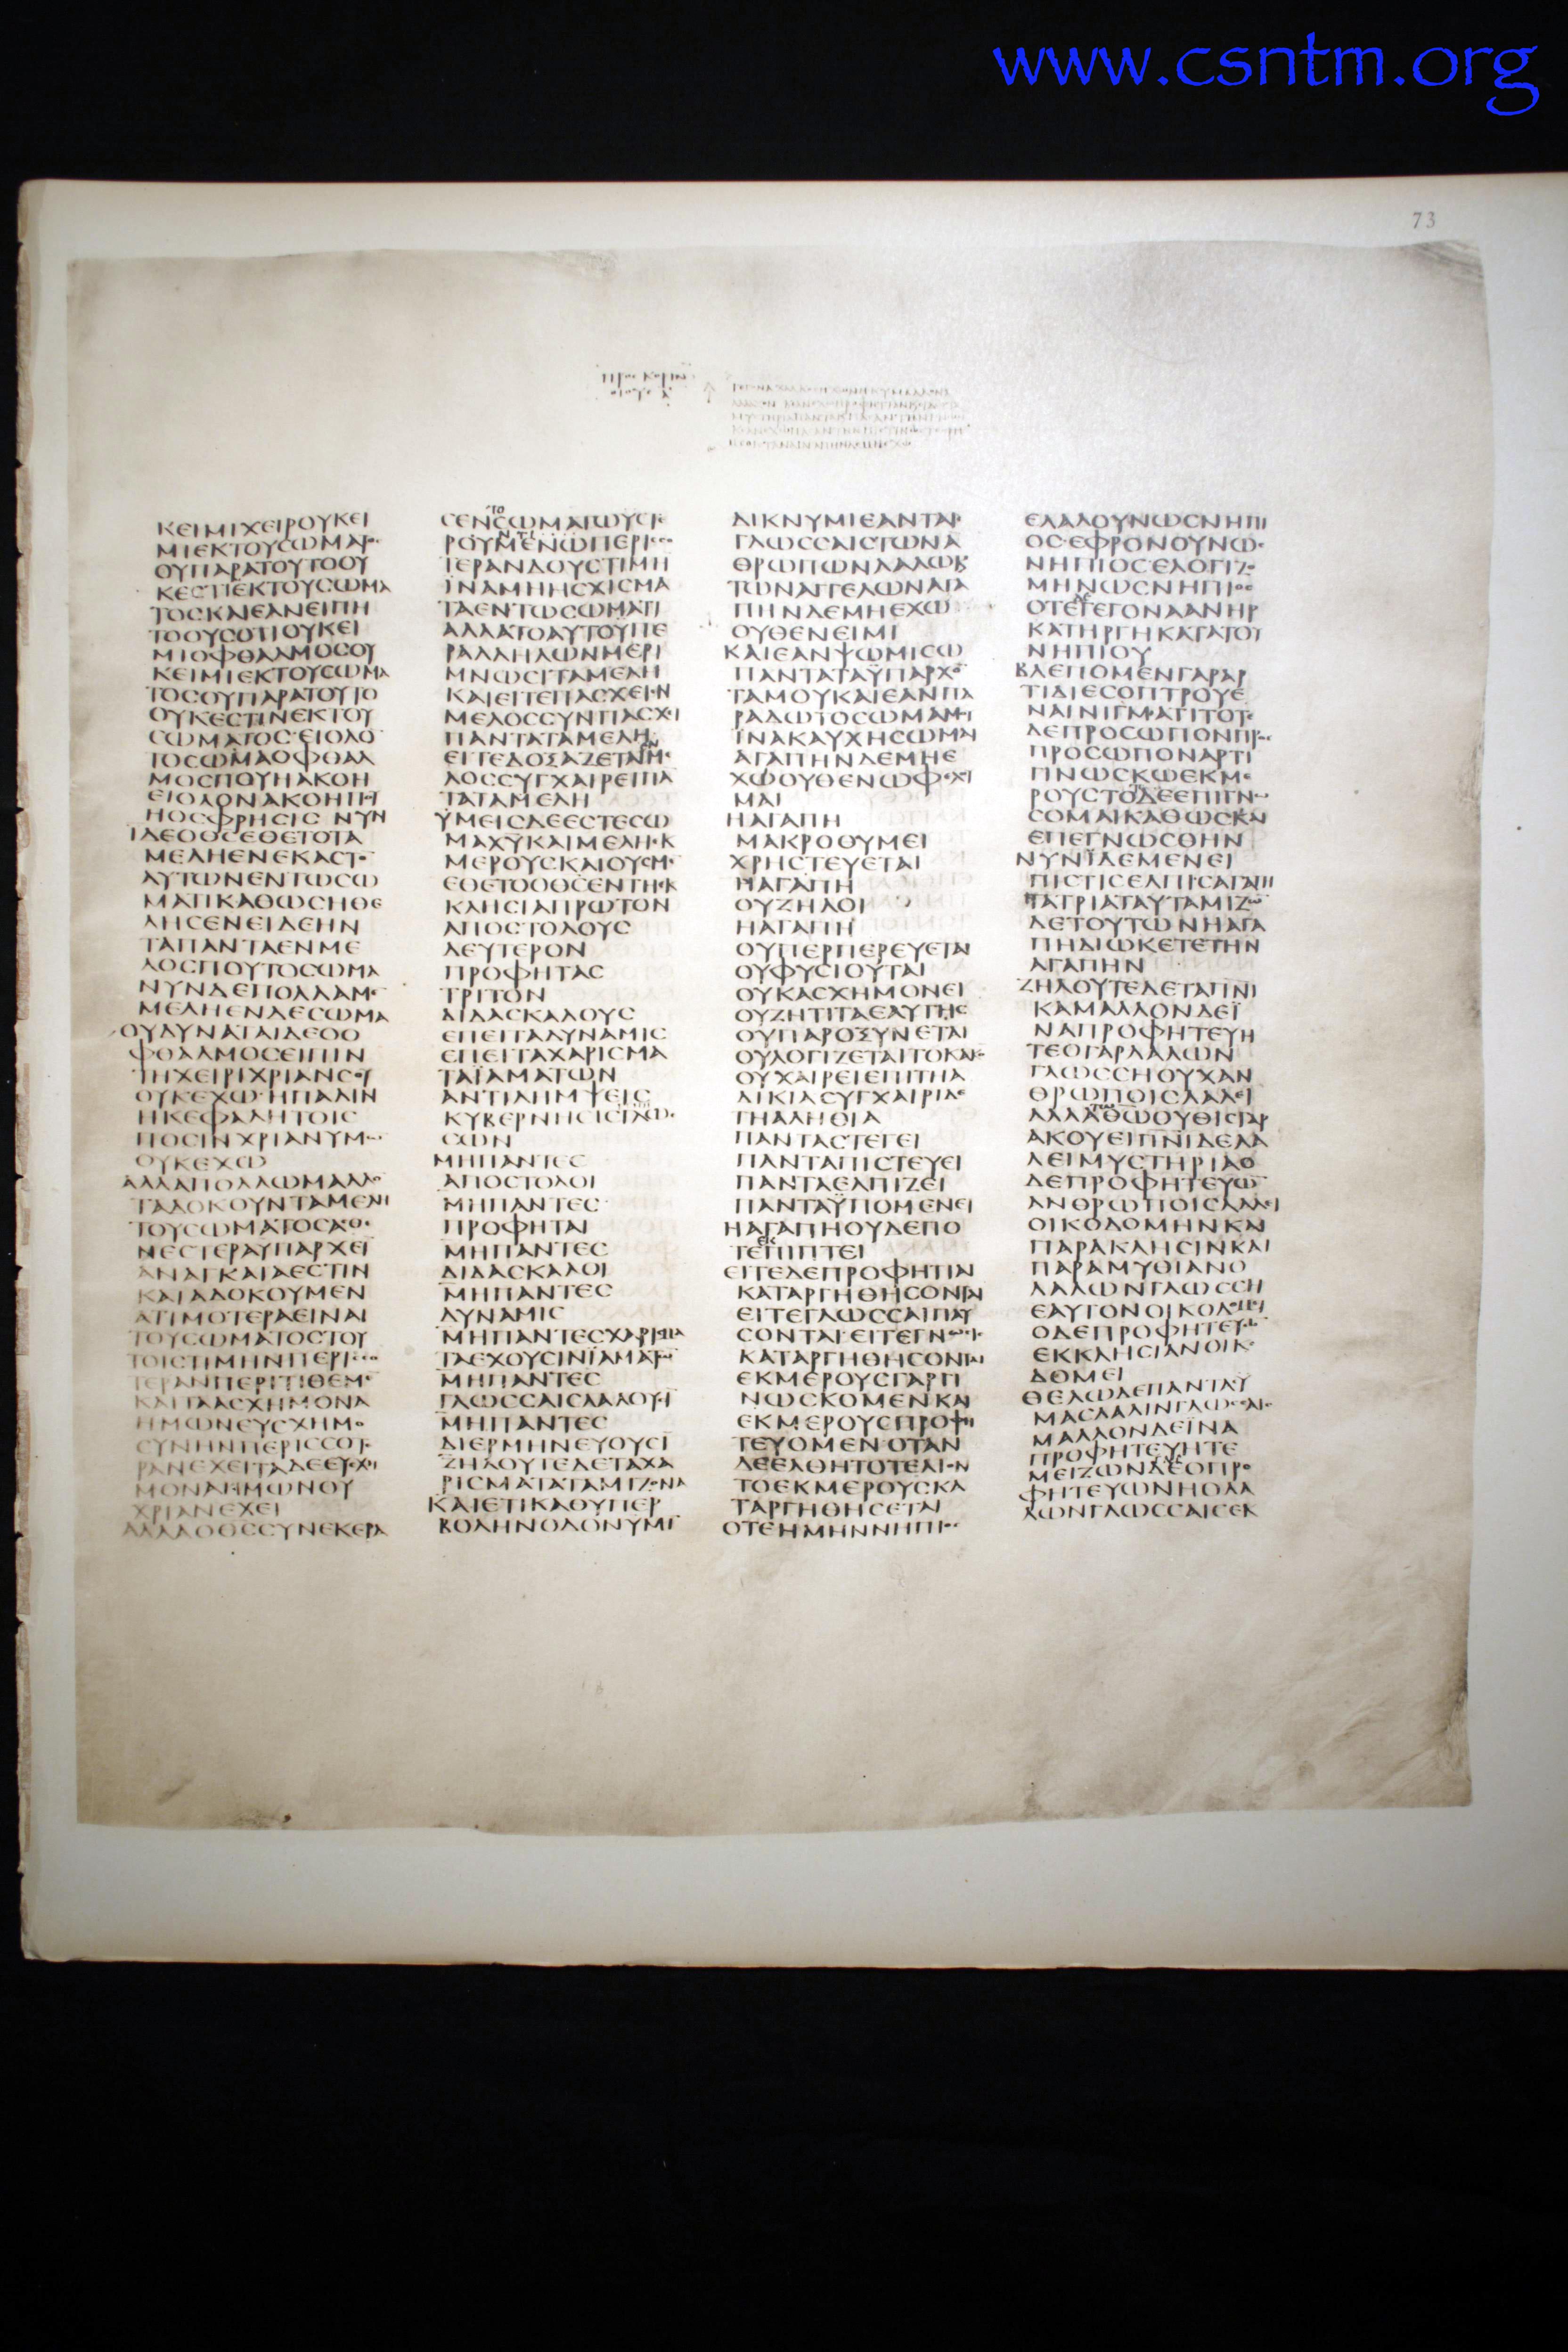 www.csntm.org
73
ΚΕΙΜΙΧΕΙΡΟΥΚΕΙ
ΜΙΕΚΤΟΥΣΩΜΑΤΟϹ
ΟΥΠΑΡΑΤΟΥΤΟΟΥ
ΚΕϹΤΙΕΚΤΟΥϹΩΜΑ
ΤΟϹΚΑΙΕΑΝΕΙΠΗ
ΤΟΟΥϹΟΤΙΟΥΚΕΙ
ΜΙΟΦΘΑΛΜΟϹΟΥ
ΚΕΙΜΙΕΚΤΟΥϹΩΜΑ
ΤΟϹΟΥΠΑΡΑΤΟΥΤΟ
ΟΥΚΕϹΤΙΝΕΚΤΟΥ
ϹΩΜΑΤΟϹ·ΕΙΟΛΟ
ΤΟϹΩΜΑΟΦΘΑΛ
ΜΟϹΠΟΥΗΑΚΟΗ
ΕΙΟΛΟΝΑΚΟΗΠΗ
ΗΟϹΦΡΗϹΙϹ ΝΥΝ
ΙΔΕΟΘϹΕΘΕΤΟΤΑ
ΜΕΛΗΕΝΕΚΑϹΤΟ
ΑΥΤΩΝΕΝΤΩϹΩ
ΜΑΤΙΚΑΘΩϹΗΘΕ
ΛΗϹΕΝΕΙΔΕΗΝ
ΤΑΠΑΝΤΑΕΝΜΕ
ΛΟϹΠΟΥΤΟϹΩΜΑ
ΝΥΝΔΕΠΟΛΛΑΜΕ
ΜΕΛΗΕΝΔΕϹΩΜΑ
ΟΥΔΥΝΑΤΑΙΔΕΟΟ
ΦΘΑΛΜΟϹΕΙΠΙΝ
ΤΗΧΕΙΡΙΧΡΙΑΝϹΟΥ
ΟΥΚΕΧΩ·ΗΠΑΛΙΝ
ΗΚΕΦΑΛΗΤΟΙϹ
ΠΟϹΙΝΧΡΙΑΝΥΜΩ
ΟΥΚΕΧΩ
ΑΛΛΑΠΟΛΛΩΜΑΛΛΟ
ΤΑΔΟΚΟΥΝΤΑΜΕΛΗ
ΤΟΥϹΩΜΑΤΟϹΑϹΘΕ
ΝΕϹΤΕΡΑΥΠΑΡΧΕΙ
ΑΝΑΓΚΑΙΑΕϹΤΙΝ
ΚΑΙΑΔΟΚΟΥΜΕΝ
ΑΤΙΜΟΤΕΡΑΕΙΝΑΙ
ΤΟΥϹΩΜΑΤΟϹΤΟΥ
ΤΟΙϹΤΙΜΗΝΠΕΡΙϹϹΟ
ΤΕΡΑΝΠΕΡΙΤΙΘΕΜΕ
ΚΑΙΤΑΑϹΧΗΜΟΝΑ
ΗΜΩΝΕΥϹΧΗΜΟ
ϹΥΝΗΝΠΕΡΙϹϹΟΤΕ
ΡΑΝΕΧΕΙΤΑΔΕΕΥϹΧΗ
ΜΟΝΑΗΜΩΝΟΥ
ΧΡΙΑΝΕΧΕΙ
ΑΛΛΑΟΘϹϹΥΝΕΚΕΡΑ
ϹΕΝΤΟϹΩΜΑΤΩΥϹΤΕ
ΡΟΥΜΕΝΩΠΕΡΙϹϹΟ
ΤΕΡΑΝΔΟΥϹΤΙΜΗ
ΪΝΑΜΗΗϹΧΙϹΜΑ
ΤΑΕΝΤΩϹΩΜΑΤΙ
ΑΛΛΑΤΟΑΥΤΟΥΠΕ
ΡΑΛΛΗΛΩΝΜΕΡΙ
ΜΝΩϹΙΤΑΜΕΛΗ
ΚΑΙΕΙΤΕΠΑϹΧΕΙΕΝ
ΜΕΛΟϹϹΥΝΠΑϹΧΕΙ
ΠΑΝΤΑΤΑΜΕΛΗ
ΕΙΤΕΔΟΞΑΖΕΤΑΙΕΝΜΕ
ΛΟϹϹΥΓΧΑΙΡΕΙΠΑ
ΤΑΤΑΜΕΛΗ
ΥΜΕΙϹΔΕΕϹΤΕϹΩ
ΜΑΧΥΚΑΙΜΕΛΗΕΚ
ΜΕΡΟΥϹΚΑΙΟΥϹΜΕ
ΕΘΕΤΟΟΘϹΕΝΤΗΕΚ
ΚΛΗϹΙΑΠΡΩΤΟΝ
ΑΠΟϹΤΟΛΟΥϹ
ΔΕΥΤΕΡΟΝ
ΠΡΟΦΗΤΑϹ
ΤΡΙΤΟΝ
ΔΙΔΑϹΚΑΛΟΥϹ
ΕΠΕΙΤΑΔΥΝΑΜΙϹ
ΕΠΕΙΤΑΧΑΡΙϹΜΑ
ΤΑΪΑΜΑΤΩΝ
ΑΝΤΙΛΗΜΨΕΙϹ
ΚΥΒΕΡΝΗϹΙϹΓΕΝΗΓΛΩϹ
ϹΩΝ
ΜΗΠΑΝΤΕϹ
ΑΠΟϹΤΟΛΟΙ
ΜΗΠΑΝΤΕϹ
ΠΡΟΦΗΤΑΙ
ΜΗΠΑΝΤΕϹ
ΔΙΔΑϹΚΑΛΟΙ
ΜΗΠΑΝΤΕϹ
ΔΥΝΑΜΙϹ
ΜΗΠΑΝΤΕϹΧΑΡΙϹΜΑ
ΤΑΕΧΟΥϹΙΝΪΑΜΑΤΩ
ΜΗΠΑΝΤΕϹ
ΓΛΩϹϹΑΙϹΛΑΛΟΥϹΙ
ΜΗΠΑΝΤΕϹ
ΔΙΕΡΜΗΝΕΥΟΥϹΙ
ΖΗΛΟΥΤΕΔΕΤΑΧΑ
ΡΙϹΜΑΤΑΤΑΜΙΖΟΝΑ
ΚΑΙΕΤΙΚΑΘΥΠΕΡ
ΒΟΛΗΝΟΔΟΝΥΜΙ
ΔΙΚΝΥΜΙΕΑΝΤΑΙϹ
ΓΛΩϹϹΑΙϹΤΩΝΑ
ΘΡΩΠΩΝΛΑΛΩΚ
ΤΩΝΑΓΓΕΛΩΝΑΓΑ
ΠΗΝΔΕΜΗΕΧΩ
ΟΥΘΕΝΕΙΜΙ
ΚΑΙΕΑΝΨΩΜΙϹΩ
ΠΑΝΤΑΤΑΫΠΑΡΧΟ
ΤΑΜΟΥΚΑΙΕΑΝΠΑ
ΡΑΔΩΤΟϹΩΜΑΜΟΥ
ΪΝΑΚΑΥΧΗϹΩΜΑΙ
ΑΓΑΠΗΝΔΕΜΗΕ
ΧΩΟΥΘΕΝΩΦΕΛΟΥ
ΜΑΙ
ΗΑΓΑΠΗ
ΜΑΚΡΟΘΥΜΕΙ
ΧΡΗϹΤΕΥΕΤΑΙ
ΗΑΓΑΠΗ
ΟΥΖΗΛΟΙ
ΗΑΓΑΠΗ
ΟΥΠΕΡΠΕΡΕΥΕΤΑΙ
ΟΥΦΥϹΙΟΥΤΑΙ
ΟΥΚΑϹΧΗΜΟΝΕΙ
ΟΥΖΗΤΙΤΑΕΑΥΤΗϹ
ΟΥΠΑΡΟΞΥΝΕΤΑΙ
ΟΥΛΟΓΙΖΕΤΑΙΤΟΚΑΚΟ
ΟΥΧΑΙΡΕΙΕΠΙΤΗΑ
ΔΙΚΙΑϹΥΓΧΑΙΡΙΔΕ
ΤΗΑΛΗΘΙΑ
ΠΑΝΤΑϹΤΕΓΕΙ
ΠΑΝΤΑΠΙϹΤΕΥΕΙ
ΠΑΝΤΑΕΛΠΙΖΕΙ
ΠΑΝΤΑΫΠΟΜΕΝΕΙ
ΗΑΓΑΠΗΟΥΔΕΠΟ
ΤΕΠΙΠΤΕΙ
ΕΙΤΕΔΕΠΡΟΦΗΤΙΑΙ
ΚΑΤΑΡΓΗΘΗϹΟΝΤΑΙ
ΕΙΤΕΓΛΩϹϹΑΙΠΑΥ
ϹΟΝΤΑΙ·ΕΙΤΕΓΝΩϹΙϹ
ΚΑΤΑΡΓΗΘΗϹΟΝΤΑΙ
ΕΚΜΕΡΟΥϹΓΑΡΓΙ
ΝΩϹΚΟΜΕΝΚΑΙ
ΕΚΜΕΡΟΥϹΠΡΟΦΗ
ΤΕΥΟΜΕΝ·ΟΤΑΝ
ΔΕΕΛΘΗΤΟΤΕΛΙΟΝ
ΤΟΕΚΜΕΡΟΥϹΚΑ
ΤΑΡΓΗΘΗϹΕΤΑΙ
ΟΤΕΗΜΗΝΝΗΠΙΟϹ
ΕΛΑΛΟΥΝΩϹΝΗΠΙ
ΟϹ·ΕΦΡΟΝΟΥΝΩϹ
ΝΗΠΙΟϹΕΛΟΓΙΖΟ
ΜΗΝΩϹΝΗΠΙΟϹ
ΟΤΕΓΕΓΟΝΑΑΝΗΡ
ΚΑΤΗΡΓΗΚΑΤΑΤΟΥ
ΝΗΠΙΟΥ
ΒΛΕΠΟΜΕΝΓΑΡΑΡ
ΤΙΔΙΕϹΟΠΤΡΟΥΕ
ΝΑΙΝΙΓΜΑΤΙΤΟΤΕ
ΔΕΠΡΟϹΩΠΟΝΠΡΟϹ
ΠΡΟϹΩΠΟΝΑΡΤΙ
ΓΙΝΩϹΚΩΕΚΜΕ
ΡΟΥϹΤΟΔΕΕΠΙΓΝΩ
ϹΟΜΑΙΚΑΘΩϹΚΑΙ
ΕΠΕΓΝΩϹΘΗΝ
ΝΥΝΪΔΕΜΕΝΕΙ
ΠΙϹΤΙϹΕΛΠΙϹΑΓΑΠΗ
ΤΑΤΡΙΑΤΑΥΤΑΜΙΖΩ
ΔΕΤΟΥΤΩΝΗΑΓΑ
ΠΗΔΙΩΚΕΤΕΤΗΝ
ΑΓΑΠΗΝ
ΖΗΛΟΥΤΕΔΕΤΑΠΝΙ
ΚΑΜΑΛΛΟΝΔΕΪ
ΝΑΠΡΟΦΗΤΕΥΗ
ΤΕΟΓΑΡΛΑΛΩΝ
ΓΛΩϹϹΗΟΥΧΑΝ
ΘΡΩΠΟΙϹΛΑΛΕΙ
ΑΛΛΑΘΩΟΥΘΙϹΓΑΡ
ΑΚΟΥΕΙΠΝΙΔΕΛΑ
ΛΕΙΜΥϹΤΗΡΙΑΟ
ΔΕΠΡΟΦΗΤΕΥΩ
ΑΝΘΡΩΠΟΙϹΛΑΛΕΙ
ΟΙΚΟΔΟΜΗΝΚΑΙ
ΠΑΡΑΚΛΗϹΙΝΚΑΙ
ΠΑΡΑΜΥΘΙΑΝΟ
ΛΑΛΩΝΓΛΩϹϹΗ
ΕΑΥΤΟΝΟΙΚΟΔΟΜΕΙ
ΟΔΕΠΡΟΦΗΤΕΥΩ
ΕΚΚΛΗϹΙΑΝΟΙΚΟ
ΔΟΜΕΙ
ΘΕΛΩΔΕΠΑΝΤΑϹΥ
ΜΑϹΛΑΛΙΝΓΛΩϹϹΑΙϹ
ΜΑΛΛΟΝΔΕΪΝΑ
ΠΡΟΦΗΤΕΥΗΤΕ
ΜΕΙΖΩΝΔΕΟΠΡΟ
ΦΗΤΕΥΩΝΗΟΛΑ
ΛΩΝΓΛΩϹϹΑΙϹΕΚ